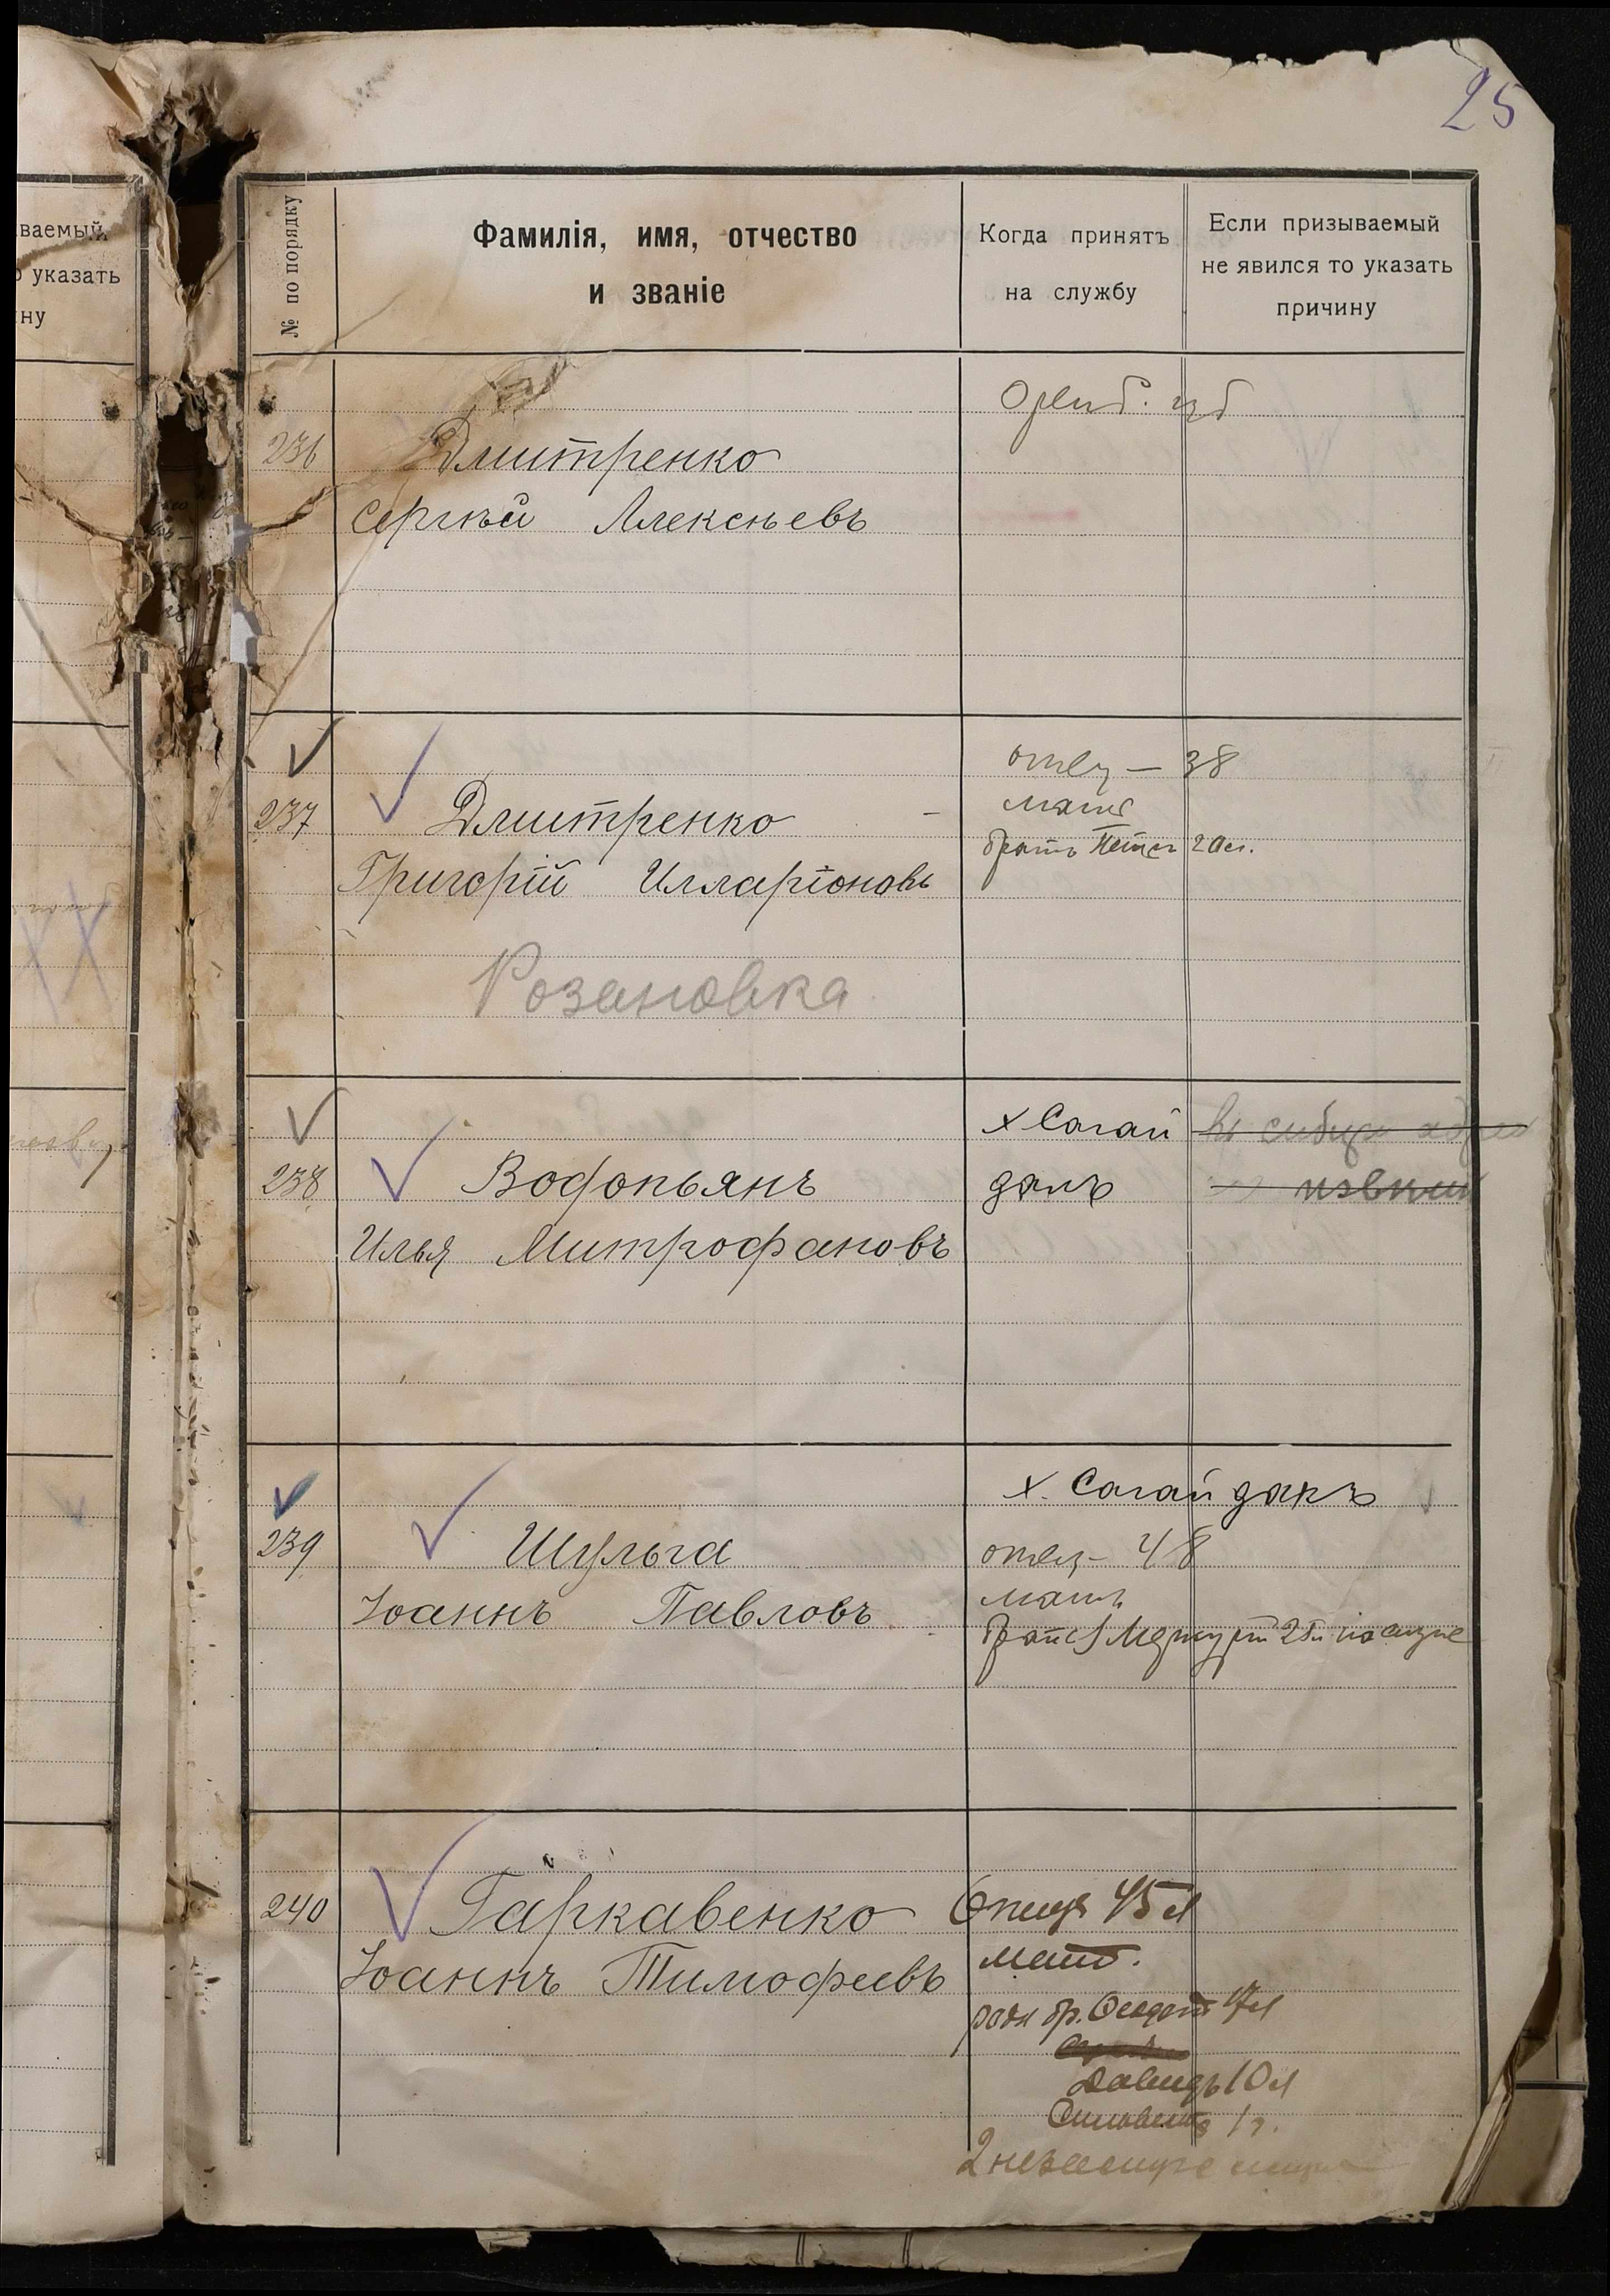 25
ваемый
указать
ну
№ по порядку
Фамилія, имя, отчество
и званіе
Когда принятъ
на службу
Если призываемый
не явился то указать
причину
236
Дмитренко
Сергѣй Алексѣевъ
237
Дмитренко
Григорій Илларіоновъ
Розановка
отец — 38
мать
братъ 20 л.
238
Водопьянъ
Илья Митрофановъ
х Сагай
дакъ
въ сибири
239
Шульга
Іоаннъ Павловъ
х. Сагайдакъ
отец - 48
мать
брат Меркурій 25 л
240
Гаркавенко
Іоаннъ Тимофеевъ
Отецъ 45 л
мать.
родн бр. 17 л
Давидъ 10 л